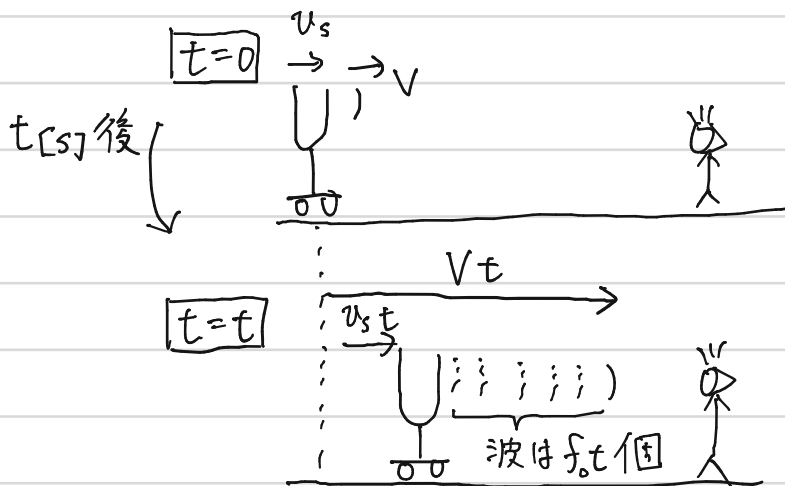 v_s
t=0
V
t[s]後
Vt
t=t
v_s t
波はf₀t個